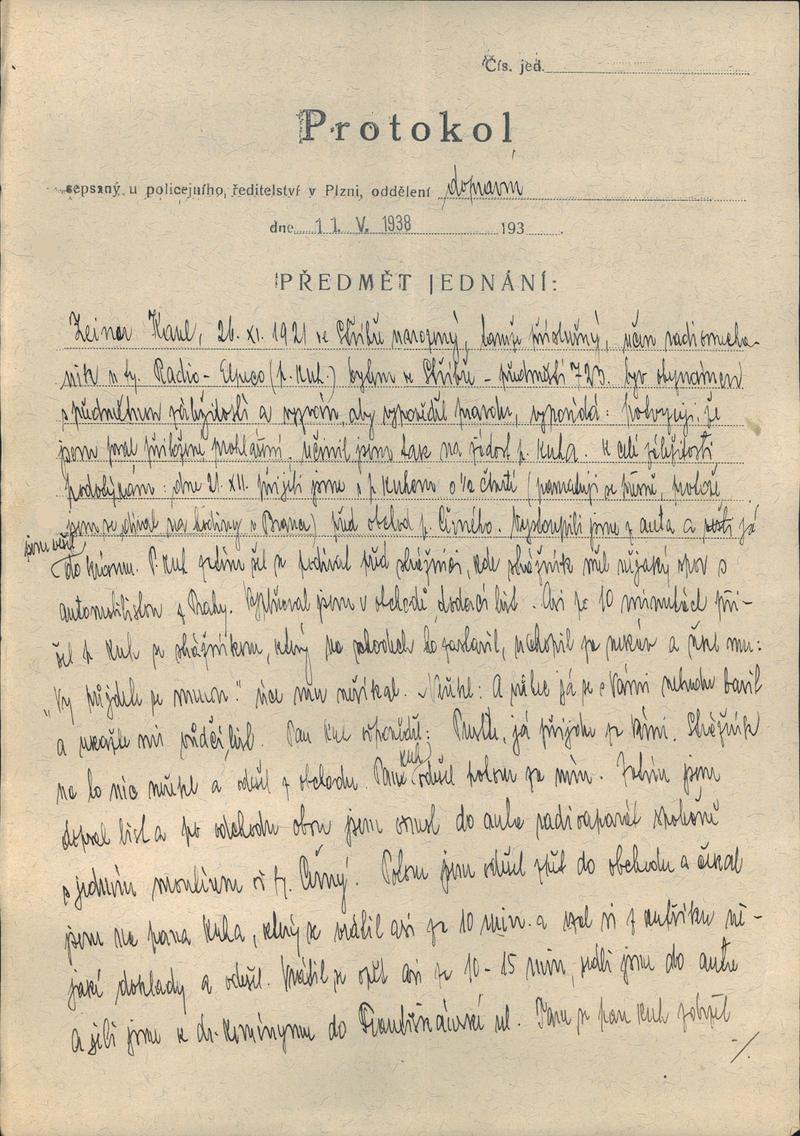 Čís. jed.
Protokol
sepsaný u policejního ředitelství v Plzni, oddělení dopravní
dne 11. V. 1938 193
PŘEDMĚT JEDNÁNÍ:
Zeiner Karel, 26. XI. 1921 ve Stříbře narozený, tamže příslušný, učeň radiomecha-
nik u fy. Radio-Elpeco (p. Kuh.) bytem ve Stříbře - předměstí 723. byv obeznámen
s předmětnou záležitostí a vyzván, aby vypověděl pravdu, vypovídá: Potvrzuji, že
jsem psal přiložené prohlášení. Učinil jsem tak na žádost p. Kuha. K celé záležitosti
podotýkám: dne 21. XII. přijeli jsme s p. Kuhem o 1/2 čtvrté (pamatuji se přesně, protože
jsem se díval na hodiny u Brance) před obchod p. Černého. Vystoupili jsme z auta a já
jsem vešel
do krámu. P. Kuh zatím šel se podívat před strážnici, kde strážník měl nějaký spor s
automobilistou z Prahy. Vyplňoval jsem v obchodě dodací list. Asi za 10 minutách při-
šel p. Kuh se strážníkem, který na schodech ho zastavil, uchopil za rukáv a řekl mu:
"Vy půjdete se mnou." více mu neříkal. Neřekl: A máte já se s Vámi nebudu bavit
a ukažte mi vůdčí list. Pan Kuh odpověděl: Pusťte, já přijdu za Vámi. Strážník
na to nic neřekl a odešel z obchodu. Pan Kuh odešel potom za ním. Zatím jsem
dopsal list a po odchodu obou jsem odnesl do auta radioaparát společně
s jedním montérem od fy. Černý. Potom jsem odešel zpět do obchodu a čekal
jsem na pana Kuha, který se vrátil asi za 10 min. a vzal si z kufříku ně-
jaké doklady a odešel. Vrátil se opět asi za 10-15 min, sedli jsme do auta
a jeli jsme k dr. Komínymu do ul. Tam se pan Kuh zdržel
./.